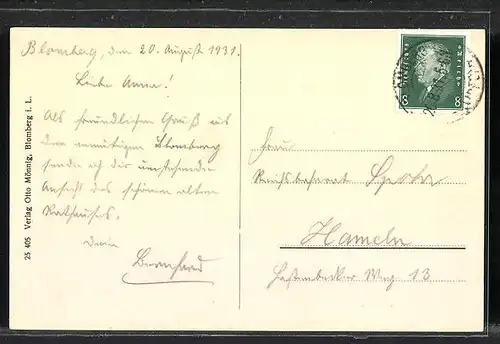 Blomberg, den 20. August 1931.
Liebe Anna!
Als freundlichen Gruß aus
dem anmutigen Blomberg
sende ich dir umstehende
Ansicht des schönen alten
Rathauses.
Dein
Bernhard
25 405 Verlag Otto Mönnig, Blomberg i. L.
Deutsches Reich
8 8
Frau
Reichsbahnrat
Hameln
Hastenbecker Weg 13